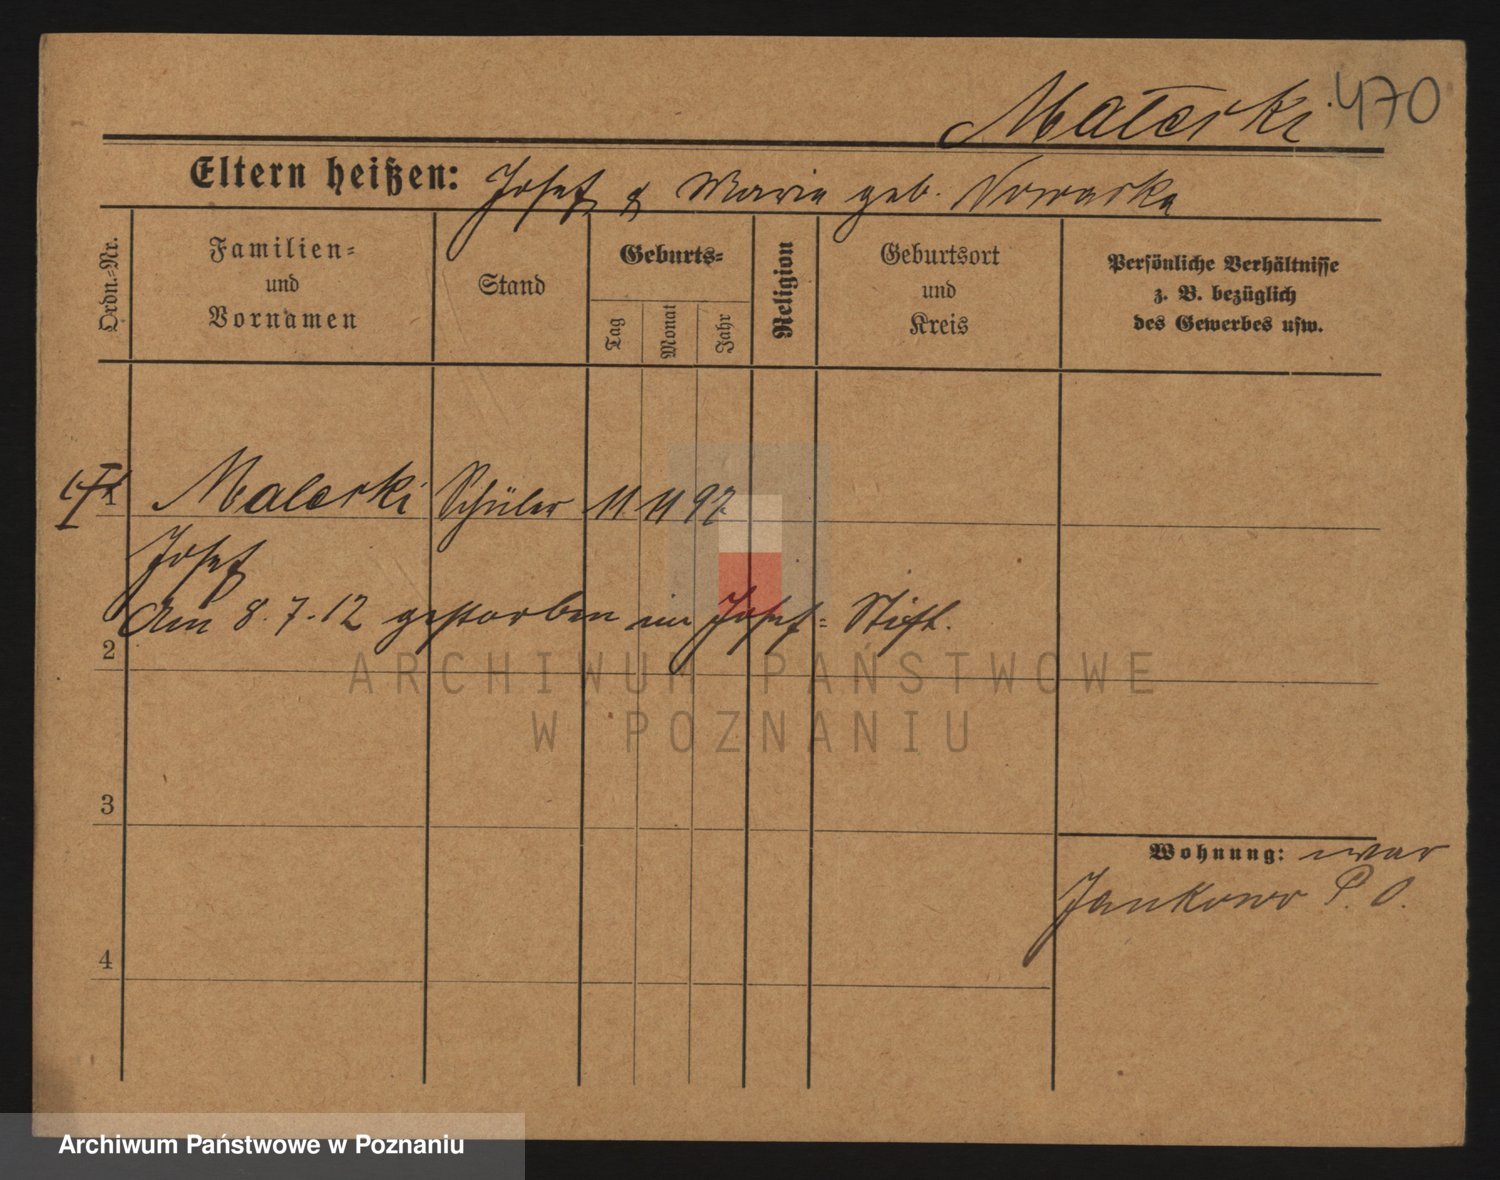 Malerski 470
Eltern heißen: Josef & Maria geb. Nowaska
Ordn.-Nr.
Familien-
und
Vornamen
Stand
Geburts-
Tag
Monat
Jahr
Religion
Geburtsort
und
Kreis
Persönliche Verhältnisse
z. B. bezüglich
des Gewerbes usw.
1 Malerski Schüler 11 11 97
Josef
Am 8.7.12 gestorben im Josef-Stift.
2
ARCHIWUM PAŃSTWOWE
W POZNANIU
3
Wohnung: war
Jankowo P. O.
4
Archiwum Państwowe w Poznaniu